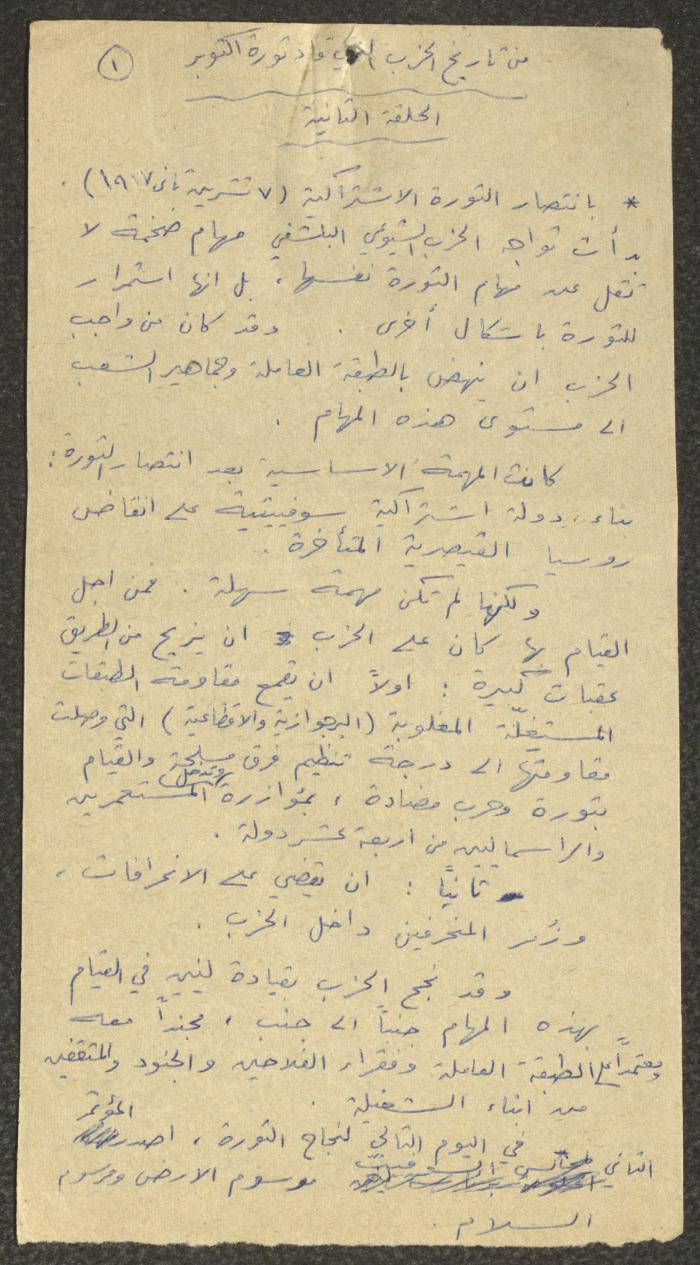 ١
من تاريخ الحزب الذي قاد ثورة اكتوبر
الحلقة الثانية
* بانتصار الثورة الاشتراكية (٧ تشرين ثاني ١٩١٧) .
بدأت تواجه الحزب الشيوعي البلشفي مهام ضخمة لا
تقل عن مهام الثورة نفسها، بل انها استمرار
للثورة باشكال أخرى . وقد كان من واجب
الحزب ان ينهض بالطبقة العاملة وجماهير الشعب
الى مستوى هذه المهام .
كانت المهمة الاساسية بعد انتصار الثورة:
بناء دولة اشتراكية سوفييتية على انقاض
روسيا القيصرية المتأخرة .
ولكنها لم تكن مهمة سهلة . فمن اجل
القيام بها كان على الحزب ان يزيح من الطريق
عقبات كبيرة : اولاً ان يقمع مقاومة الطبقات
المستغِلّة المغلوبة (البرجوازية والاقطاعية) التي وصلت
مقاومتها الى درجة تنظيم فرق مسلحة والقيام
بثورة وحرب مضادة ، بمؤازرة وتدخل المستعمرين
والراسماليين من اربعة عشر دولة .
ثانيًا : ان يقضي على الانحرافات ،
وزمر المنحرفين داخل الحزب .
وقد نجح الحزب بقيادة لينين في القيام
بهذه المهام جنباً الى جنب ، مجنداً معه
ومعتمداً على الطبقة العاملة وفقراء الفلاحين والجنود والمثقفين
من ابناء الشغيلة .
في اليوم التالي لنجاح الثورة ، اصدر المؤتمر
الثاني لمجالس السوفييت مرسوم الارض ومرسوم
السلام .